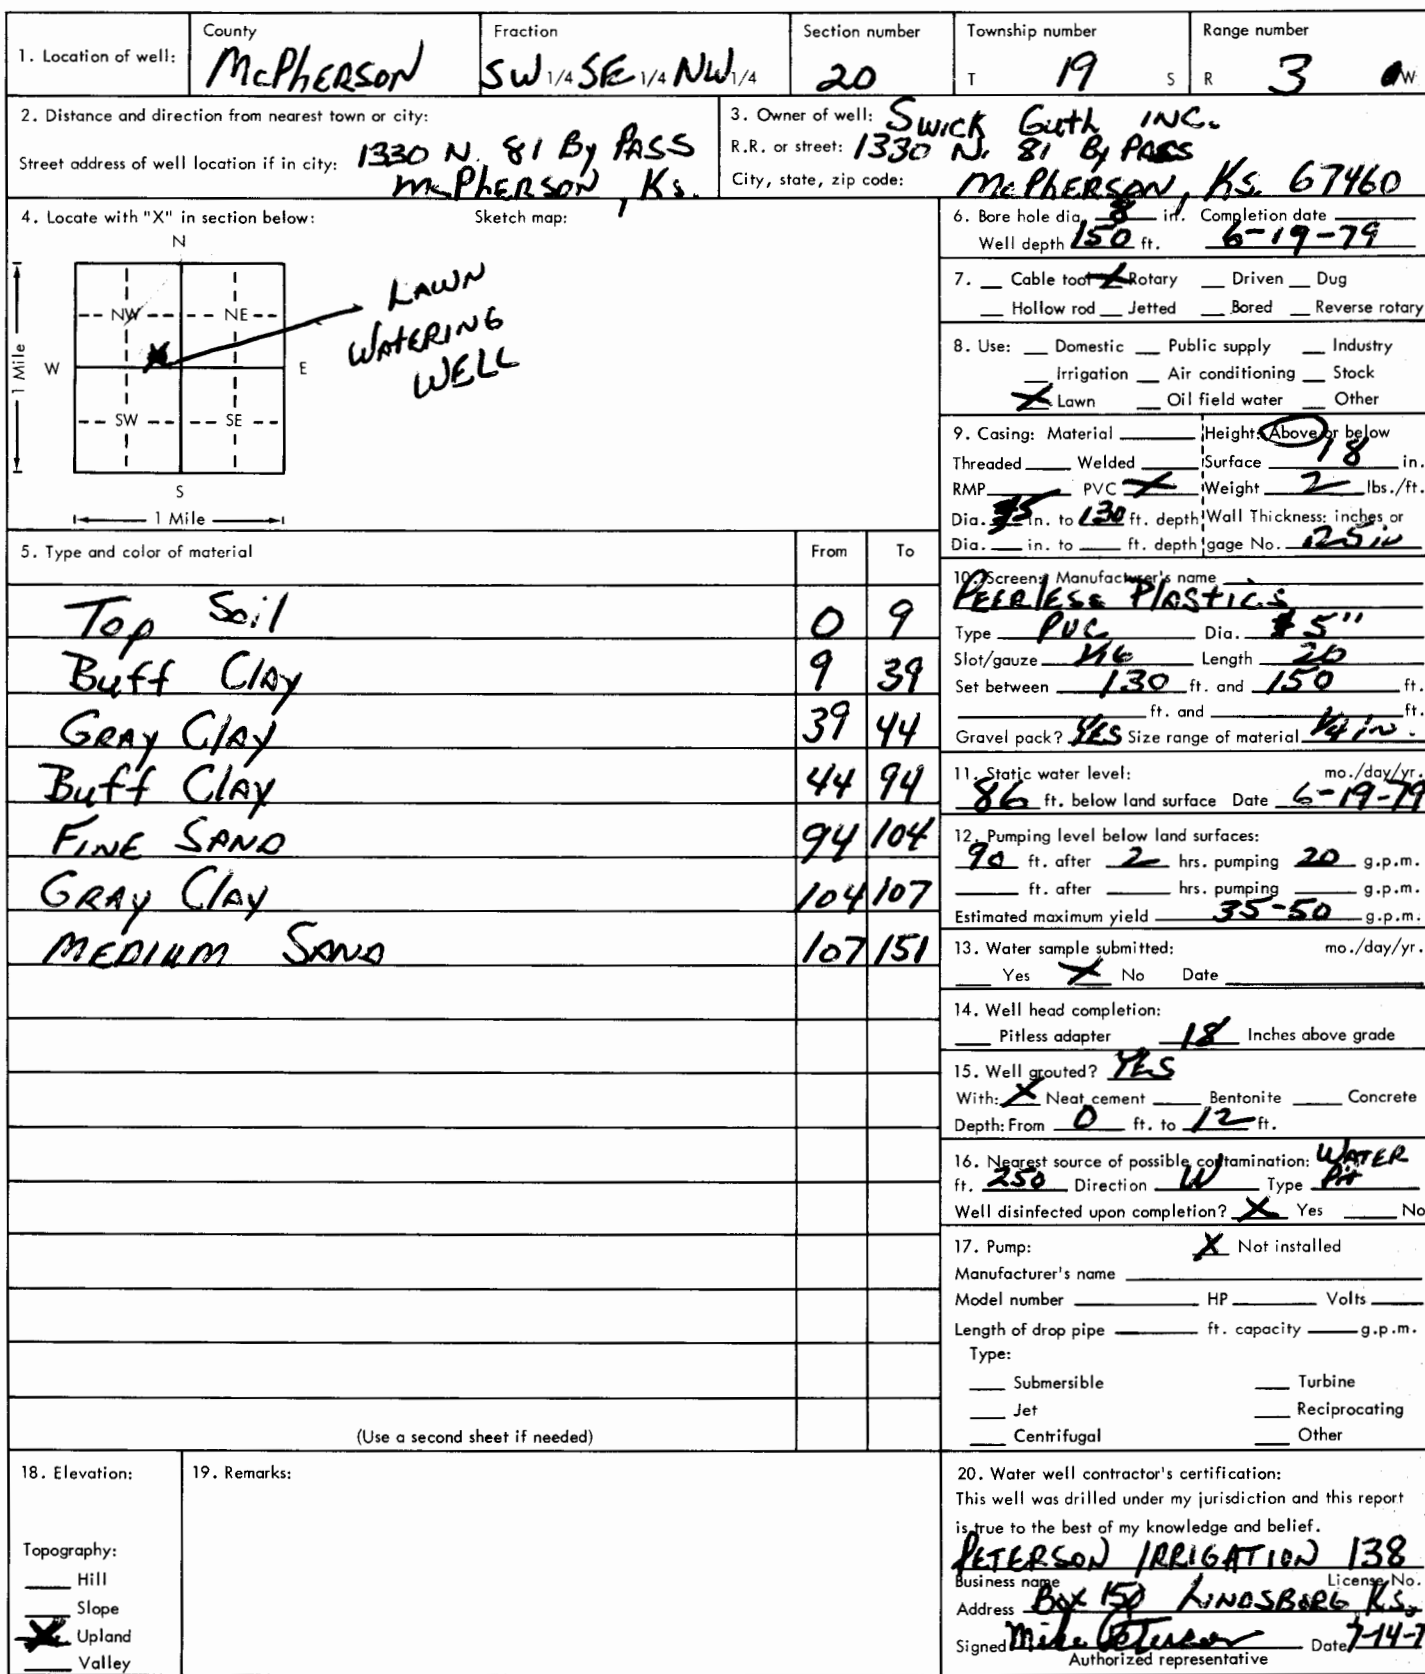 1. Location of well:
County
McPHERSON
Fraction
SW 1/4 SE 1/4 NW 1/4
Section number
20
Township number
T 19 S
Range number
R 3 W
2. Distance and direction from nearest town or city:
Street address of well location if in city: 1330 N. 81 By PASS
McPHERSON, Ks.
3. Owner of well: Swick Guth INC.
R.R. or street: 1330 N. 81 By PASS
City, state, zip code: McPHERSON, Ks. 67460
4. Locate with "X" in section below:
Sketch map:
N
NW NE
W E
SW SE
S
1 Mile
1 Mile
X
LAWN
WATERING
WELL
5. Type and color of material From To
Top Soil 0 9
Buff Clay 9 39
GRAY Clay 39 44
Buff Clay 44 94
FINE SAND 94 104
GRAY Clay 104 107
MEDIUM SAND 107 151
(Use a second sheet if needed)
6. Bore hole dia. 8 in. Completion date
Well depth 150 ft. 6-19-79
7. __ Cable tool X Rotary __ Driven __ Dug
__ Hollow rod __ Jetted __ Bored __ Reverse rotary
8. Use: __ Domestic __ Public supply __ Industry
__ Irrigation __ Air conditioning __ Stock
X Lawn __ Oil field water __ Other
9. Casing: Material ____ Height: Above or below
Threaded ____ Welded ____ Surface 18 in.
RMP ____ PVC X Weight 2 lbs./ft.
Dia. 5 in. to 130 ft. depth Wall Thickness: inches or
Dia. ___ in. to ___ ft. depth gage No. 125 in
10. Screen: Manufacturer's name
PEERLESS PLASTICS
Type PVC Dia. 5"
Slot/gauze 1/16 Length 20
Set between 130 ft. and 150 ft.
____ ft. and ____ ft.
Gravel pack? YES Size range of material 1/4 in.
11. Static water level: mo./day/yr.
86 ft. below land surface Date 6-19-79
12. Pumping level below land surfaces:
90 ft. after 2 hrs. pumping 20 g.p.m.
____ ft. after ____ hrs. pumping ____ g.p.m.
Estimated maximum yield 35-50 g.p.m.
13. Water sample submitted: mo./day/yr.
__ Yes X No Date
14. Well head completion:
__ Pitless adapter 18 Inches above grade
15. Well grouted? YES
With: X Neat cement ____ Bentonite ____ Concrete
Depth: From 0 ft. to 12 ft.
16. Nearest source of possible contamination: WATER
ft. 250 Direction W Type Pit
Well disinfected upon completion? X Yes ____ No
17. Pump: X Not installed
Manufacturer's name
Model number ____ HP ____ Volts ____
Length of drop pipe ____ ft. capacity ____ g.p.m.
Type:
__ Submersible __ Turbine
__ Jet __ Reciprocating
__ Centrifugal __ Other
18. Elevation:
Topography:
__ Hill
__ Slope
X Upland
__ Valley
19. Remarks:
20. Water well contractor's certification:
This well was drilled under my jurisdiction and this report
is true to the best of my knowledge and belief.
PETERSON IRRIGATION 138
Business name License No.
Address Box 150 LINDSBORG Ks.
Signed Mike Peterson Date 7-14-7
Authorized representative